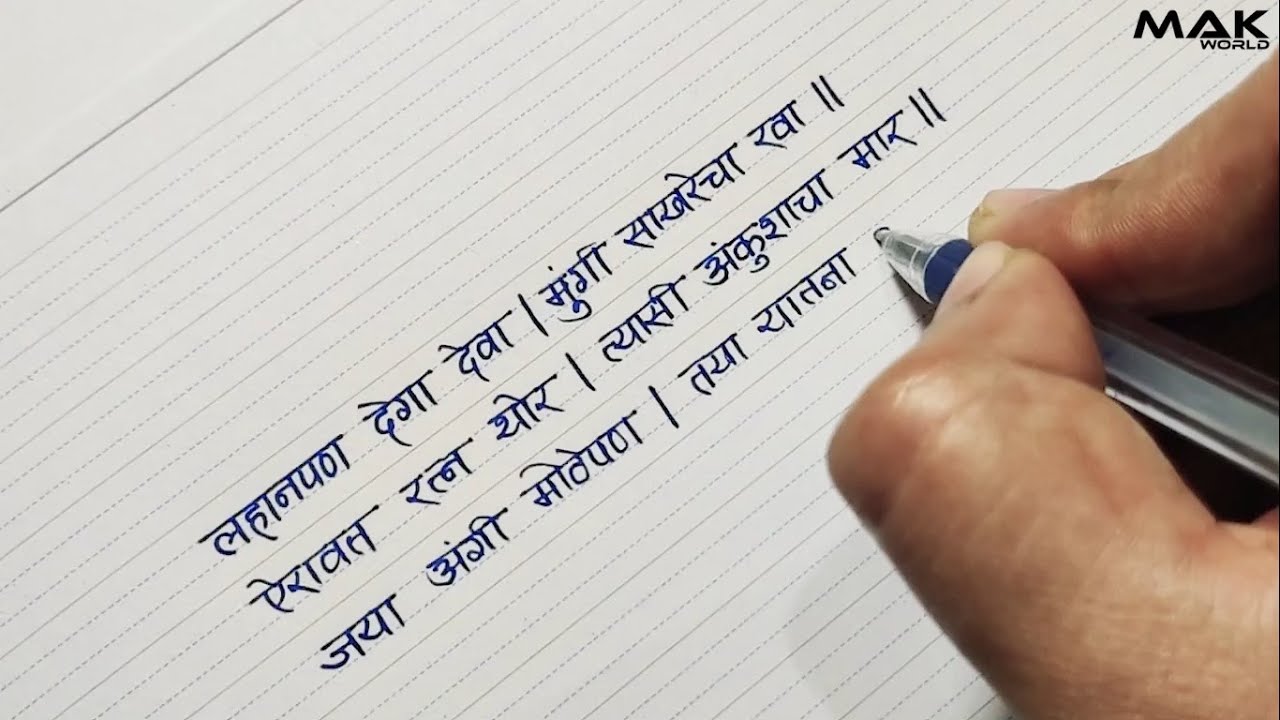 MAK
WORLD
लहानपण देगा देवा । मुंगी साखरेचा रवा ॥
ऐरावत रत्न थोर । त्यासी अंकुशाचा मार ॥
जया अंगी मोठेपण । तया यातना